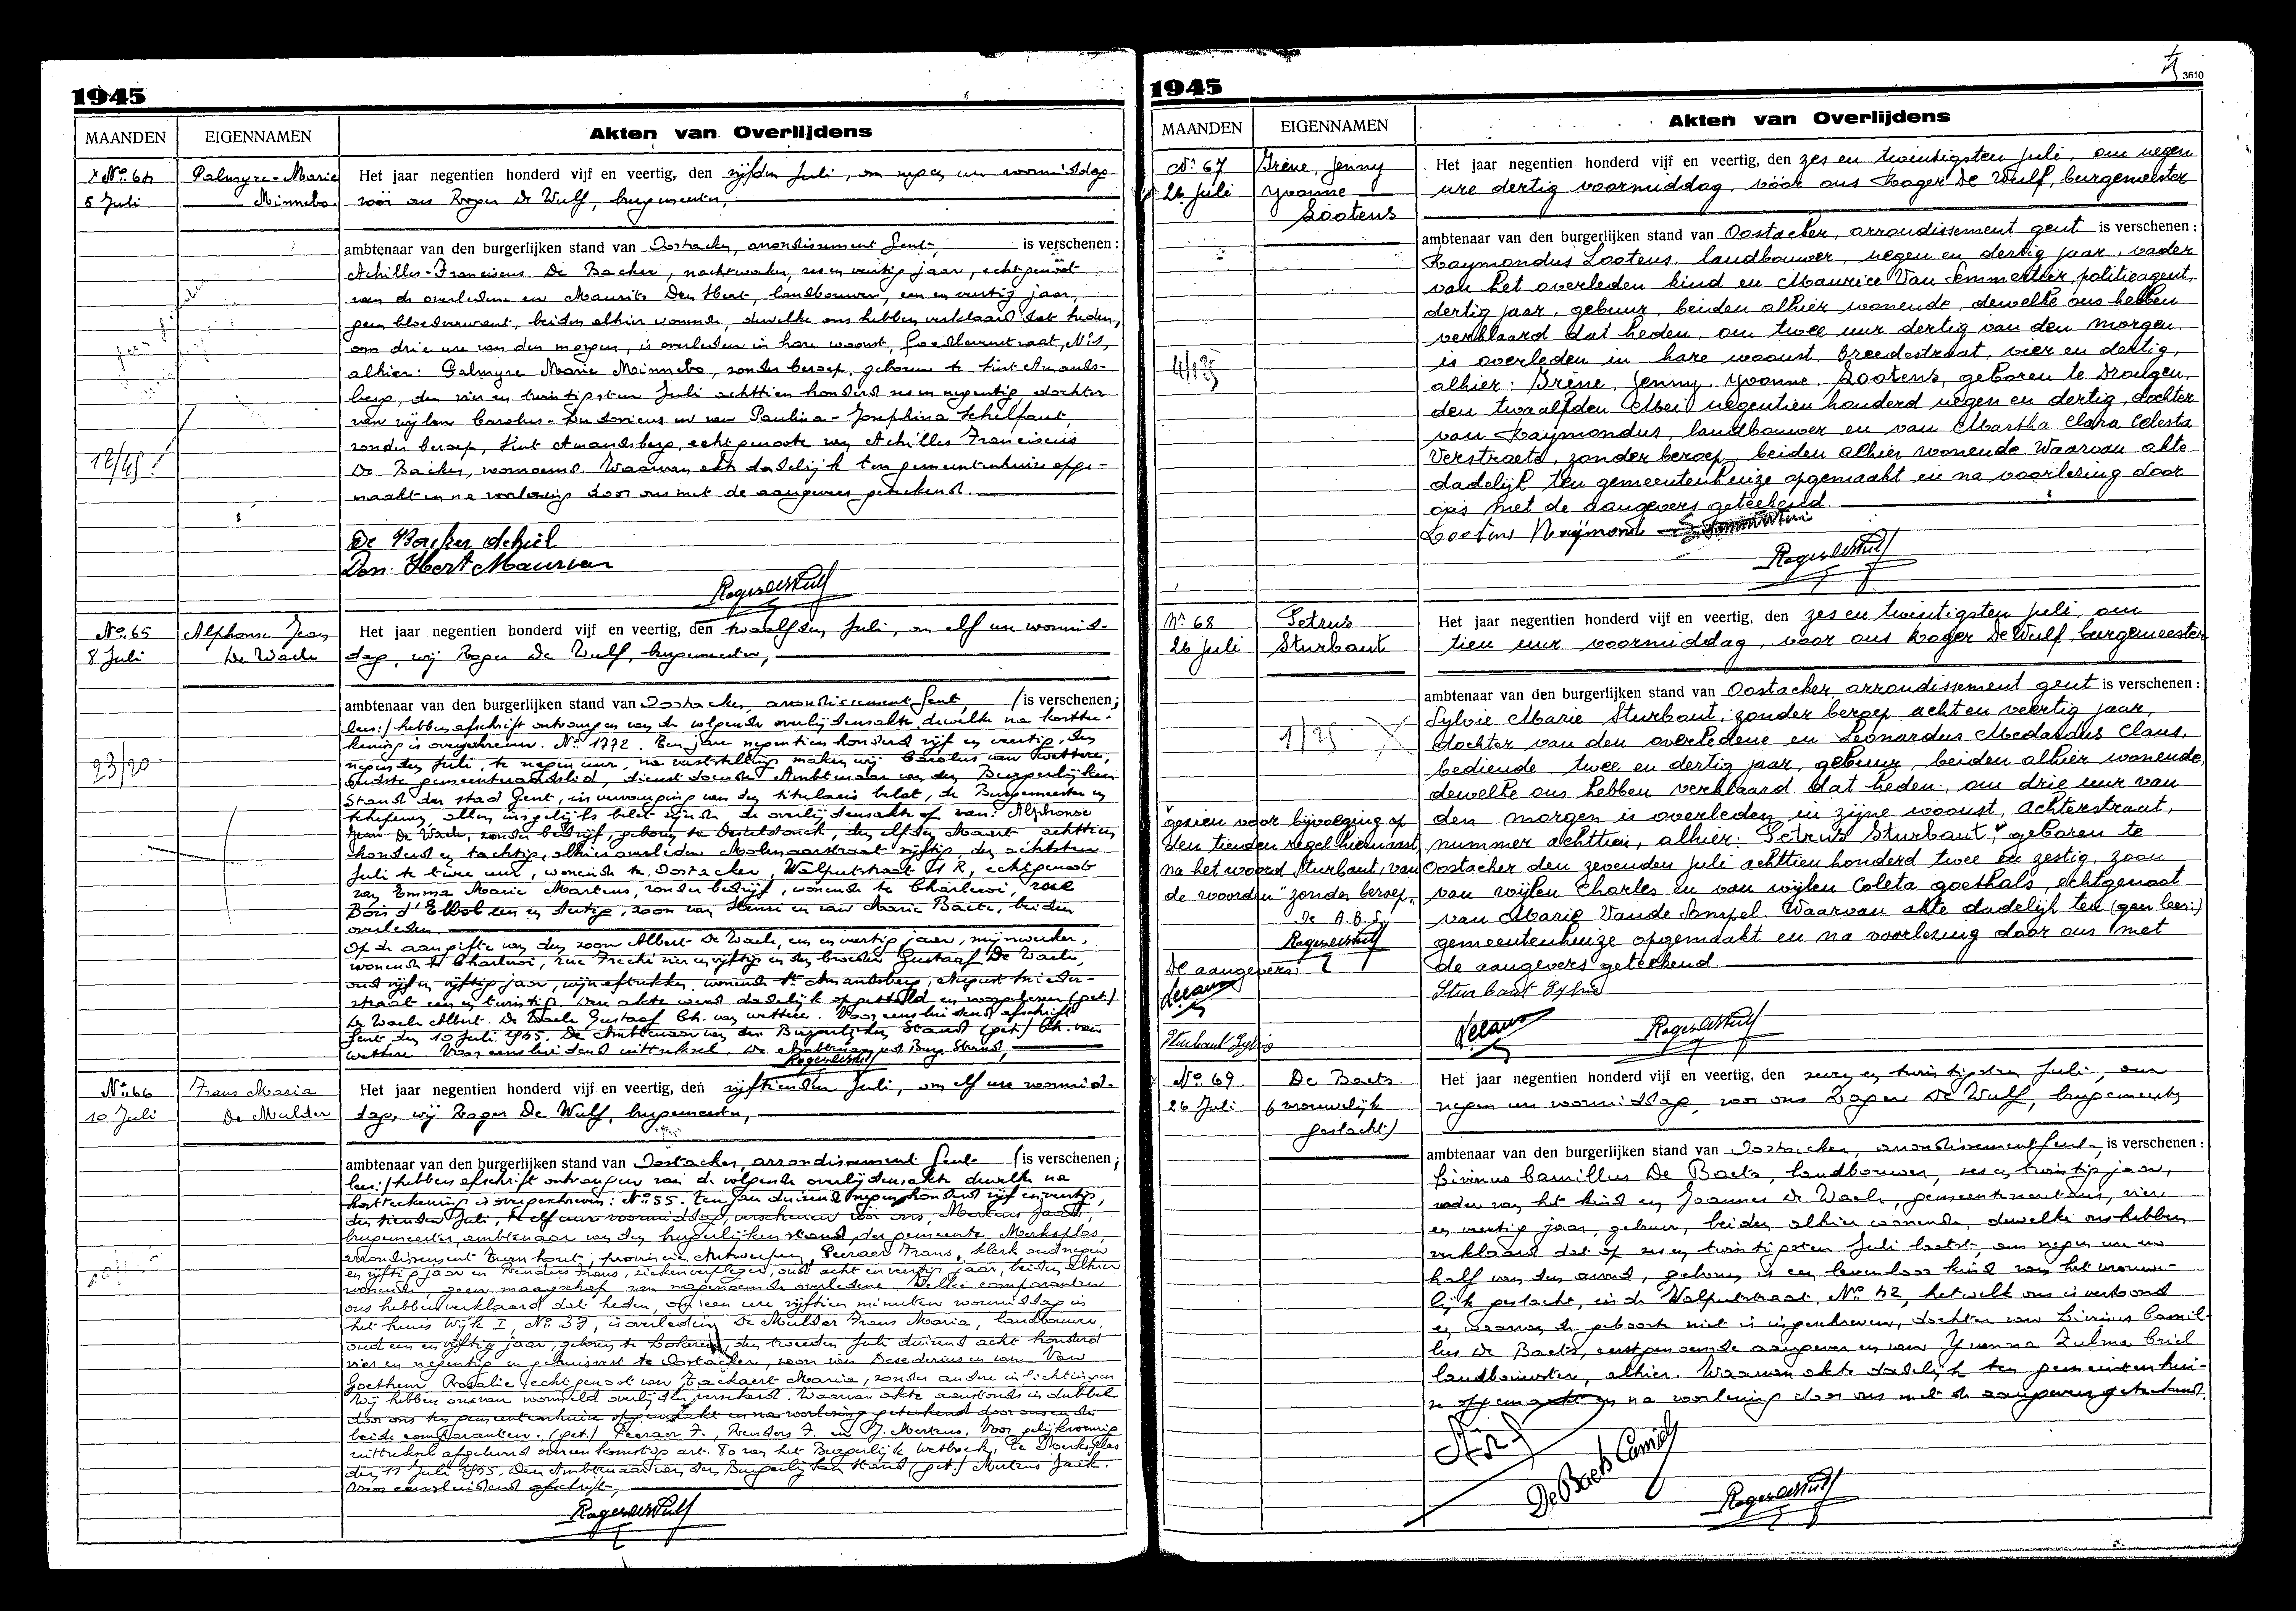 1945
MAANDEN EIGENNAMEN Akten van Overlijdens
No. 64 Palmyre-Marie Minnebo.
5 Juli
Het jaar negentien honderd vijf en veertig, den vijfden Juli, om negen ure voormiddag
vóór ons Roger De Wulf, burgemeester,
ambtenaar van den burgerlijken stand van Oostacker, arrondissement Gent, is verschenen:
Achilles-Franciscus De Backer, nachtwaker, zes en veertig jaar, echtgenoot
van de overledene en Maurits Den Hert, landbouwer, een en veertig jaar,
geen bloedverwant, beiden alhier wonende, dewelke ons hebben verklaard dat heden,
om drie ure van den morgen, is overleden in hare woonst, straat, No 1,
alhier: Palmyre Marie Minnebo, zonder beroep, geboren te Sint Amands-
berg, den vier en twintigsten Juli achttien honderd zes en negentig, dochter
van wijlen Carolus-Ludovicus en van Paulina-Josephina Schelfaut,
zonder beroep, Sint Amandsberg, echtgenoote van Achilles Franciscus
De Backer, voornoemd. Waarvan akte dadelijk ten gemeentenhuize opge-
maakt en na voorlezing door ons met de aangevers geteekend.
12/45
De Backer Achiel
Den Hert Maurice
Roger De Wulf
No. 65 Alphonse Jean De Waele
8 Juli
Het jaar negentien honderd vijf en veertig, den twaalfden Juli, om elf ure voormid-
dag, wij Roger De Wulf, burgemeester,
ambtenaar van den burgerlijken stand van Oostacker, arrondissement Gent, (is verschenen;
lees:) hebben afschrift ontvangen van de volgende overlijdensakte dewelke na kortte-
kening is overgeschreven. No. 1772. Ten jare negentien honderd vijf en veertig, den
negenden Juli, te negen uur, na vaststelling maken wij Carolus van Wettere,
oudste gemeenteraadslid, dienstdoende Ambtenaar van den Burgerlijken
Stand der stad Gent, in vervanging van den titularis belet, de Burgemeester en
Schepenen, allen insgelijks belet zijnde de overlijdensakte op van: Alphonse
Jean De Waele, zonder bedrijf, geboren te Desteldonck, den elfden Maart achttien
honderd en tachtig, alhier overleden Molenaarstraat vijftig den achtsten
Juli te twee uur, wonende te Oostacker, Walputstraat 11 R, echtgenoot
van Emma Marie Martens, zonder bedrijf, wonende te Charleroi, rue
Bois een en dertig, zoon van Henri en van Marie Baete, beiden
overleden.
Op de aangifte van den zoon Albert De Waele, een en veertig jaar, mijnwerker,
wonende te Charleroi, rue vier en vijftig en den broeder Gustaaf De Waele,
oud vijf en vijftig jaar, wonende St Amandsberg, August
straat een en twintig. Den akte werd dadelijk opgesteld en voorgelezen (get.)
De Waele Albert. De Waele Gustaaf Ch. van Wettere. Voor eensluidend afschrift
Gent den 10 Juli 1945. De Ambtenaar van den Burgerlijken Stand (get.) Ch. van
Wettere Voor eensluidend uittreksel. De Ambtenaar v/d Burg. Stand,
Roger De Wulf
23/20
No. 66 Frans Maria De Mulder
10 Juli
Het jaar negentien honderd vijf en veertig, den vijftienden Juli, om elf ure voormid-
dag, wij Roger De Wulf, burgemeester,
ambtenaar van den burgerlijken stand van Oostacker, arrondissement Gent (is verschenen;
lees:) hebben afschrift ontvangen van de volgende overlijdensakte dewelke na
kortteekening is overgeschreven: No. 55. Ten jare duizend negen honderd vijf en veertig,
den tienden Juli, te elf uur voormiddag, verschenen vóór ons, Mertens Jaak,
burgemeester ambtenaar van den burgerlijken stand, der gemeente Merksplas,
arrondissement Turnhout, provincie Antwerpen, Peeraer Frans, klerk oud negen
en vijftig jaar en Renders Frans, ziekenverpleger, oud acht en veertig jaar, beiden alhier
wonende, geen maagschap van nagenoemde overledene. Welke comparanten
ons hebben verklaard dat heden, om een ure vijftien minuten voormiddag in
het huis Wijk I, No. 37, is overleden De Mulder Frans Maria, landbouwer,
oud een en vijftig jaar, geboren te Lokeren, den tweeden Juli duizend acht honderd
vier en negentig en gehuisvest te Oostacker, zoon van Desederius en van Van
Goethem Rosalie echtgenoot van Eackaert Maria, zonder andere inlichtingen
Wij hebben ons van voormeld overlijden verzekerd. Waarvan akte aanstonds in dubbel
door ons ten gemeentenhuize opgemaakt en na voorlezing geteekend door ons en de
beide comparanten. (get.) Peeraer F., Renders F. en J. Mertens. Voor gelijkvormig
uittreksel afgeleverd overeenkomstig art. 80 van het Burgerlijk Wetboek, te Merksplas
den 11 Juli 1945. Den Ambtenaar van den Burgerlijken Stand (get.) Mertens Jaak.
Voor eensluidend afschrift,
Roger De Wulf
3610
1945
MAANDEN EIGENNAMEN Akten van Overlijdens
No. 67 Irène, Jenny Yvonne Lootens
26 Juli
Het jaar negentien honderd vijf en veertig, den zes en twintigsten Juli, om negen
ure dertig voormiddag, vóór ons Roger De Wulf, burgemeester
ambtenaar van den burgerlijken stand van Oostacker, arrondissement Gent is verschenen:
Raymondus Lootens, landbouwer, negen en dertig jaar, vader
van het overleden kind en Maurice Van Semmertier, politieagent,
dertig jaar, gebuur, beiden alhier wonende, dewelke ons hebben
verklaard dat heden, om twee uur dertig van den morgen
is overleden in hare woonst, Breedestraat, vier en dertig,
alhier: Irène, Jenny, Yvonne, Lootens, geboren te Drongen,
den twaalfden Mei negentien honderd negen en dertig, dochter
van Raymondus, landbouwer en van Martha Clara Celesta
Verstraete, zonder beroep, beiden alhier wonende. Waarvan akte
dadelijk ten gemeentenhuize opgemaakt en na voorlezing door
ons met de aangevers geteekend.
4/125
Lootens Reijmond
Roger De Wulf
Nr. 68 Petrus Sturbaut
26 Juli
Het jaar negentien honderd vijf en veertig, den zes en twintigsten Juli, om
tien uur voormiddag, voor ons Roger De Wulf, burgemeester
ambtenaar van den burgerlijken stand van Oostacker, arrondissement Gent is verschenen:
Sylvie Marie Sturbaut, zonder beroep acht en veertig jaar,
dochter van den overledene en Leonardus Medardus Claus,
bediende, twee en dertig jaar, gebuur, beiden alhier wonende,
dewelke ons hebben verklaard dat heden, om drie uur van
den morgen is overleden in zijne woonst, Achterstraat,
nummer achttien, alhier: Petrus Sturbaut, geboren te
Oostacker den zevenden Juli achttien honderd twee en zestig, zoon
van wijlen Charles en van wijlen Coleta Goethals, echtgenoot
van Marie Vande Sompel. Waarvan akte dadelijk ten (gem lees:)
gemeentenhuize opgemaakt en na voorlezing door ons met
de aangevers geteekend.
1/25
gezien voor bijvoeging op
den tienden regel hiernaast,
na het woord Sturbaut, van
de woorden "zonder beroep"
De A.B.S.
Roger De Wulf
De aangevers:
Sturbaut Sylvie
Sturbaut Sylvie
Roger De Wulf
No. 69 De Baets (vrouwelijk geslacht)
26 Juli
Het jaar negentien honderd vijf en veertig, den zeven en twintigsten Juli, om
negen ure voormiddag, voor ons Roger De Wulf, burgemeester
ambtenaar van den burgerlijken stand van Oostacker, arrondissement Gent, is verschenen:
Livinus Camillus De Baets, landbouwer, zes en twintig jaar,
vader van het kind en Joannes De Waele, gemeentesecretaris, vier
en veertig jaar, gebuur, beiden alhier wonende, dewelke ons hebben
verklaard dat op zes en twintigsten Juli laatst, om negen ure en
half van den avond, geboren is een levenloos kind van het vrouwe-
lijk geslacht, in de Walputstraat, No. 42, hetwelk ons is vertoond
en waarvan de geboorte niet is ingeschreven, dochter van Livinus Camil-
lus De Baets, eerstgenoemde aangever en van Yvonna Zulma Criel
landbouwster, alhier. Waarvan akte dadelijk ten gemeentenhui-
ze opgemaakt en na voorlezing door ons met de aangevers geteekend.
De Baets Camiel
Roger De Wulf